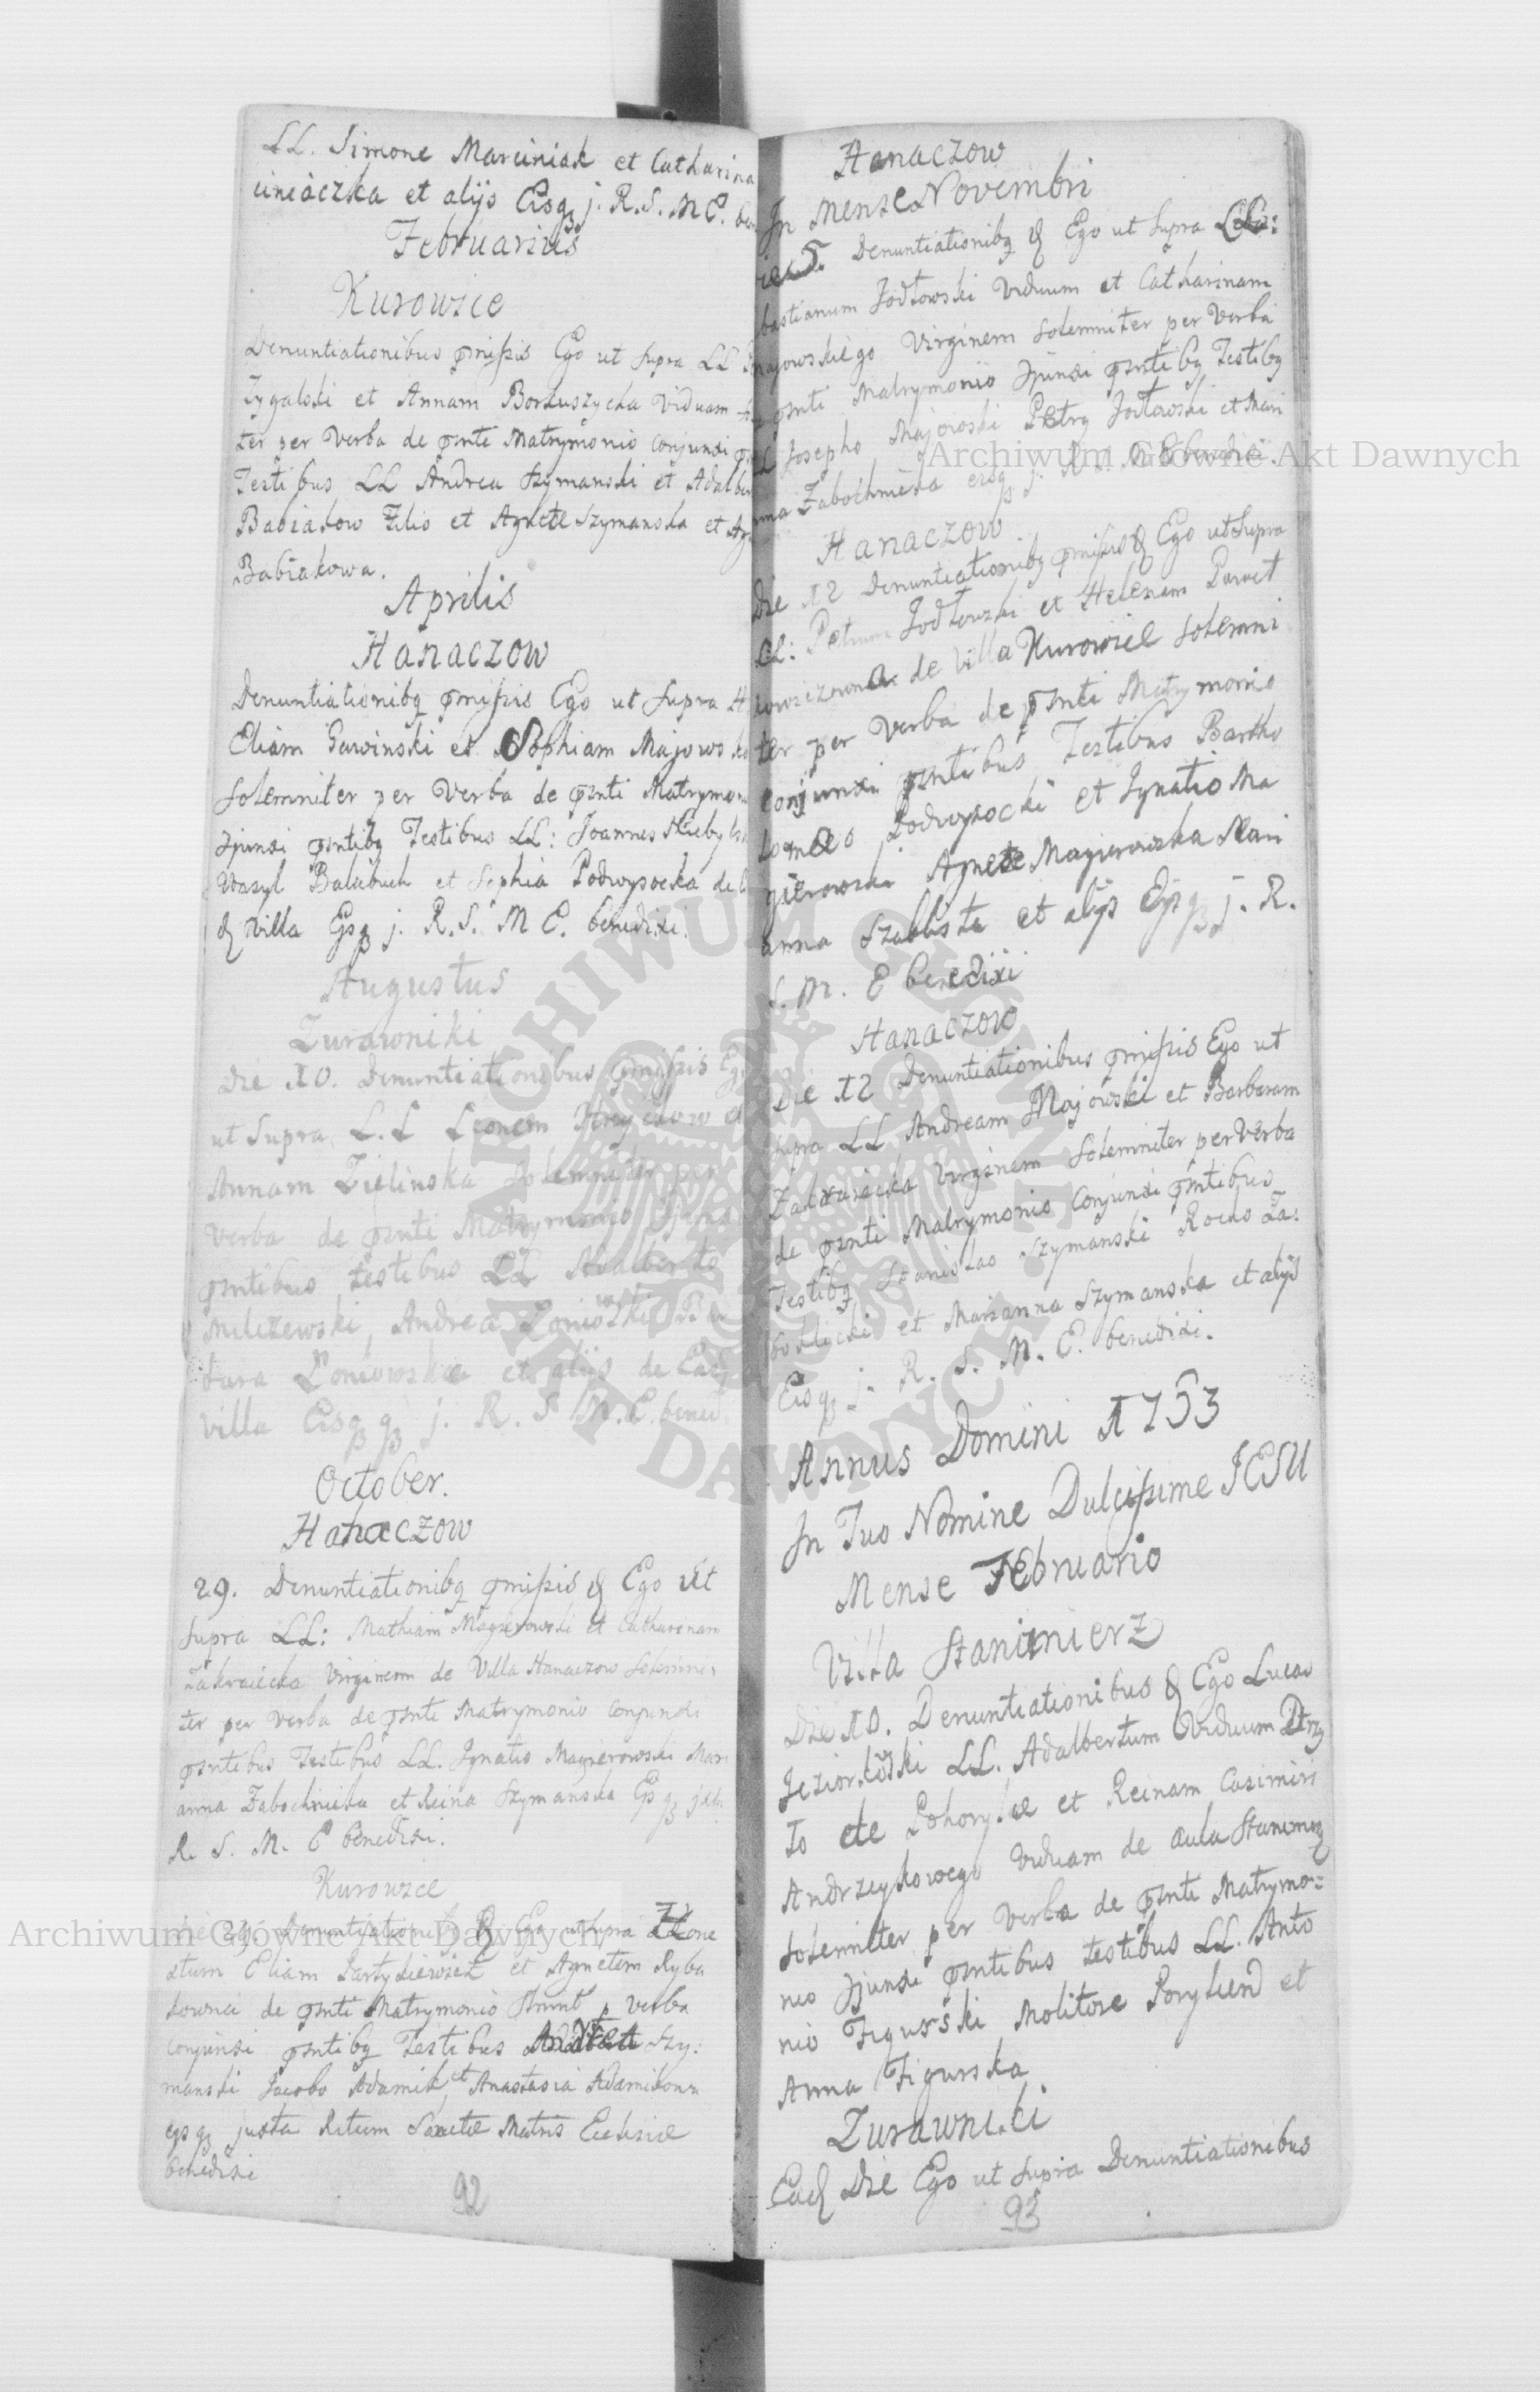 LL. Simone Marciniak et Catharina
cineaczka et alijs Eisqз j. R. S. M E. ben
Februarius
Kurowice
Denuntiationibus pmissis Ego ut supra LL
Zygalski et Annam Borkuszycka Viduam
ter per Verba de psnti Matrymonio conjunxi
Testibus LL Andrea Szymanski et Adalber
Babiakow Filio et Agnete Szymanska et Ag
Babiakowa.
Aprilis
Hanaczow
Denuntiationibq pmissis Ego ut supra
Eliam Gawinski et Sophiam Majows
Solemniter per Verba de psnti Matrymon
Testibus LL: Joannes
Wasyl Balabuch et Sophia Podwysocka de
villa Eisqз j. R. S. M E. benedixi.
Augustus
Zurawniki
Die 10. Denuntiationibus pmissis Eg
ut supra L.L Leonem et
Annam Zielinska Solemniter per
Verba de psnti Matrymonio
psntibus testibus LL Adalberto
Milizewski, Andrea Loniowski Bar
bara Loniowska et alijs de Ead
villa Eisqз qз j. R. S M. E. bened.
October.
Hanaczow
29. Denuntiationibq pmissis & Ego ut
supra LL: Mathiam Magierowski et Catharinam
Zakraicka Virginem de Villa Hanaczow Solemni
ter per Verba de psnti Matrymonio conjunxi
psntibus Testibus LL. Ignatio Magierowski Mari
anna Zabochnicka et Reina Szymanska Eisqз
R. S. M. E benedixi.
Kurowice
Die 29. Denuntiationibq & Ego ut supra
Eliam Partykiewicz et Agnetem Ryba
kowna de psnti Matrymonio p Verba
conjunxi psntibq Testibus Andrea Szy:
manski Jacobo Adamik et Anastasia Adamikowa
eisqз juxta Ritum Sanctæ Matris Ecclesiæ
benedixi
92
Hanaczow
In Mense Novembri
5. Denuntiationibq & Ego ut supra
bastianum Jodłowski Viduum et Catharinam
Majowskiego Virginem Solemniter per Verba
psnti Matrymonio psntibq Testibq
Josepho Majowski Petro Jodłowski et Mari
anna Zabochnicka eisqз j. R. S. M E benedixi.
Hanaczow
Die 12 Denuntiationibq pmissis & Ego ut supra
LL: Petrum Jodłowski et Helenam
de villa Kurowice Solemni
ter per Verba de psnti Matrymonio
conjunxi psntibus Testibus Bartho
lomeo Podwysocki et Ignatio Ma
gierowski Agnete Magierowska Mari
anna et alijs Eisqз j. R.
S. M. E benedixi
Hanaczow
Die 12 Denuntiationibus pmissis Ego ut
supra LL Andream Majowski et Barbaram
Zakraicka Virginem Solemniter per Verba
de psnti Matrymonio Conjunxi psntibus
Testibq Stanislao Szymanski Rocho Za:
et Marianna Szymanska et alijs
Eisqз j. R. S. M. E. benedixi.
Annus Domini 1753
In Tuo Nomine Dulcissime JESU
Mense Februario
Villa Stanimierz
Die 10. Denuntiationibus & Ego Lucas
LL. Adalbertum Viduum
to de Pohorylce et Reinam Casimiri
Andrzeykowego Viduam de aula Stanimirz
Solemniter per Verba de psnti Matrymo=
nio psntibus testibus LL. Anto
nio Figurski Molitore et
Anna Figurska
Zurawniki
Ead Die Ego ut supra Denuntiationibus
93
Archiwum Główne Akt Dawnych
Archiwum Główne Akt Dawnych
ARCHIWUM GŁÓWNE AKT DAWNYCH